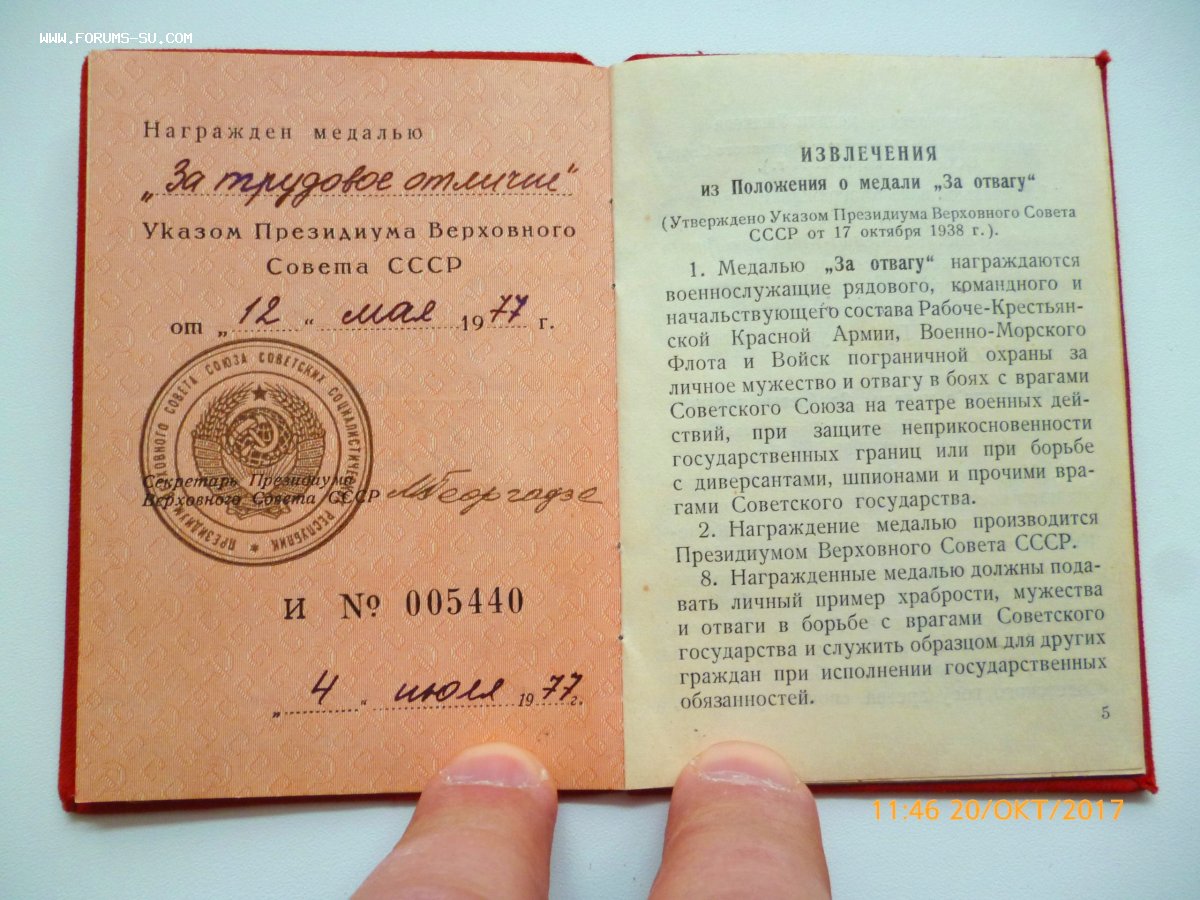 WWW.FORUMS-SU.COM
Награжден медалью
„За трудовое отличие"
Указом Президиума Верховного
Совета СССР
от „ 12 “ мая 1977 г.
ПРЕЗИДИУМ ВЕРХОВНОГО СОВЕТА СОЮЗА СОВЕТСКИХ СОЦИАЛИСТИЧЕСКИХ РЕСПУБЛИК
Секретарь Президиума
Верховного Совета СССР МГеоргадзе
И № 005440
„ 4 “ июля 1977 г.
ИЗВЛЕЧЕНИЯ
из Положения о медали „За отвагу“
(Утверждено Указом Президиума Верховного Совета
СССР от 17 октября 1938 г.).
1. Медалью „За отвагу“ награждаются
военнослужащие рядового, командного и
начальствующего состава Рабоче-Крестьян-
ской Красной Армии, Военно-Морского
Флота и Войск пограничной охраны за
личное мужество и отвагу в боях с врагами
Советского Союза на театре военных дей-
ствий, при защите неприкосновенности
государственных границ или при борьбе
с диверсантами, шпионами и прочими вра-
гами Советского государства.
2. Награждение медалью производится
Президиумом Верховного Совета СССР.
8. Награжденные медалью должны пода-
вать личный пример храбрости, мужества
и отваги в борьбе с врагами Советского
государства и служить образцом для других
граждан при исполнении государственных
обязанностей.
5
11:46 20/ОКТ/2017